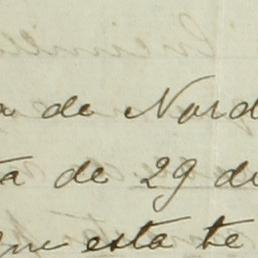 de Nord
de 29 de
que esta te